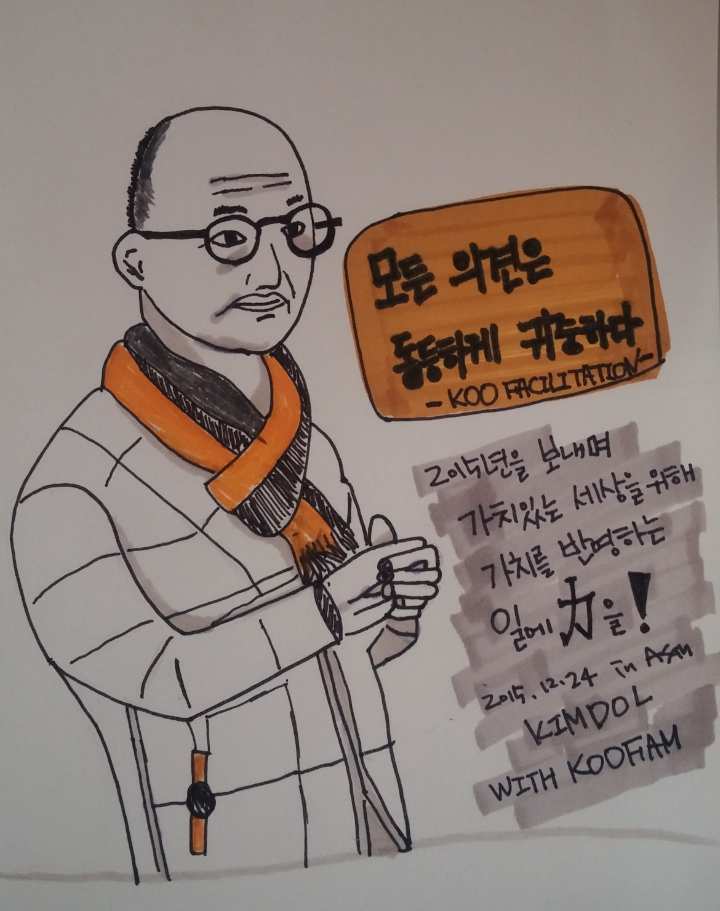 모든 의견은
동등하게 귀중하다
- KOO FACILITATION -
2015년을 보내며
가치있는 세상을 위해
가치를 반영하는
일에 力을!
2015. 12. 24 in Asan
KIMDOL
WITH KOOFAM